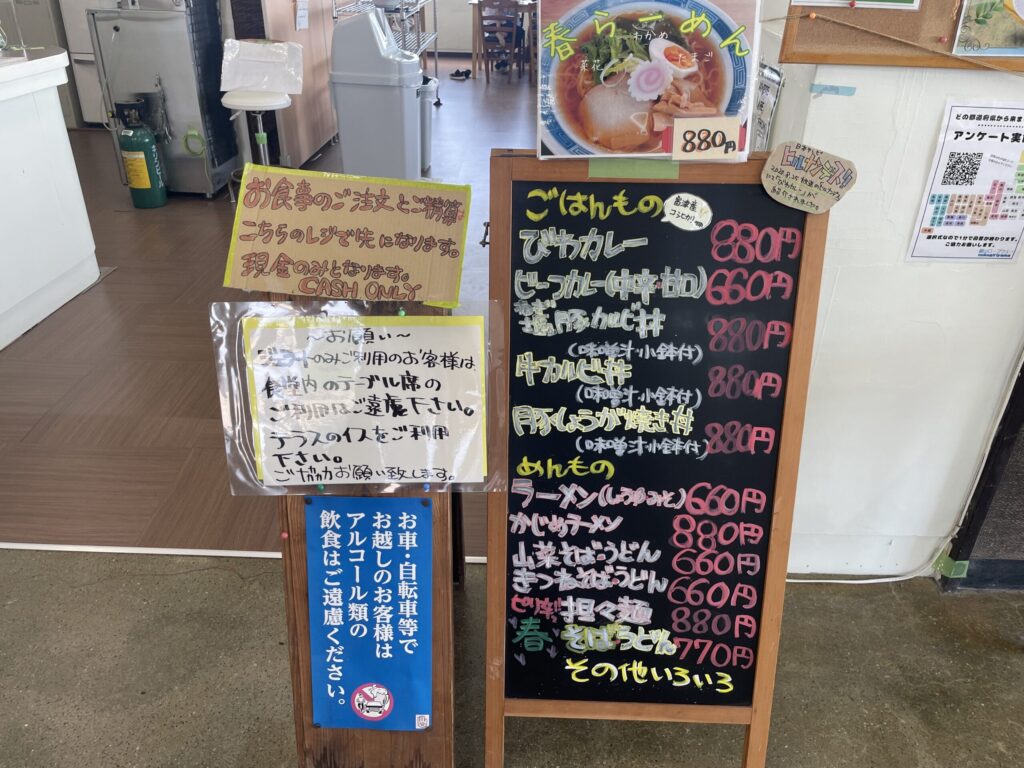 春らーめん
わかめ
菜花
たまご
880円
ごはんもの
会津産
コシヒカリ
びわカレー 880円
ビーフカレー(中辛・甘口) 660円
塩豚カルビ丼 880円
(味噌汁・小鉢付)
牛カルビ丼 880円
(味噌汁・小鉢付)
豚しょうが焼き丼 880円
(味噌汁・小鉢付)
めんもの
ラーメン(しょうゆ・みそ) 660円
かじめラーメン 880円
山菜そば・うどん 660円
きつねそば・うどん 660円
ピリ辛!! 担々麺 880円
春 そばうどん 770円
その他いろいろ
お食事のご注文とご精算
こちらのレジで先になります。
現金のみとなります。
CASH ONLY
～お願い～
のみご利用のお客様は
食堂内のテーブル席の
ご利用はご遠慮下さい。
テラスのイスをご利用
下さい。
ご協力お願い致します。
お車・自転車等で
お越しのお客様は
アルコール類の
飲食はご遠慮ください。
日本テレビ
ヒルナンデス!
どの都道府県から来ま
アンケート実
選択式なので1分で回答が終わります。
ご協力お願いします。